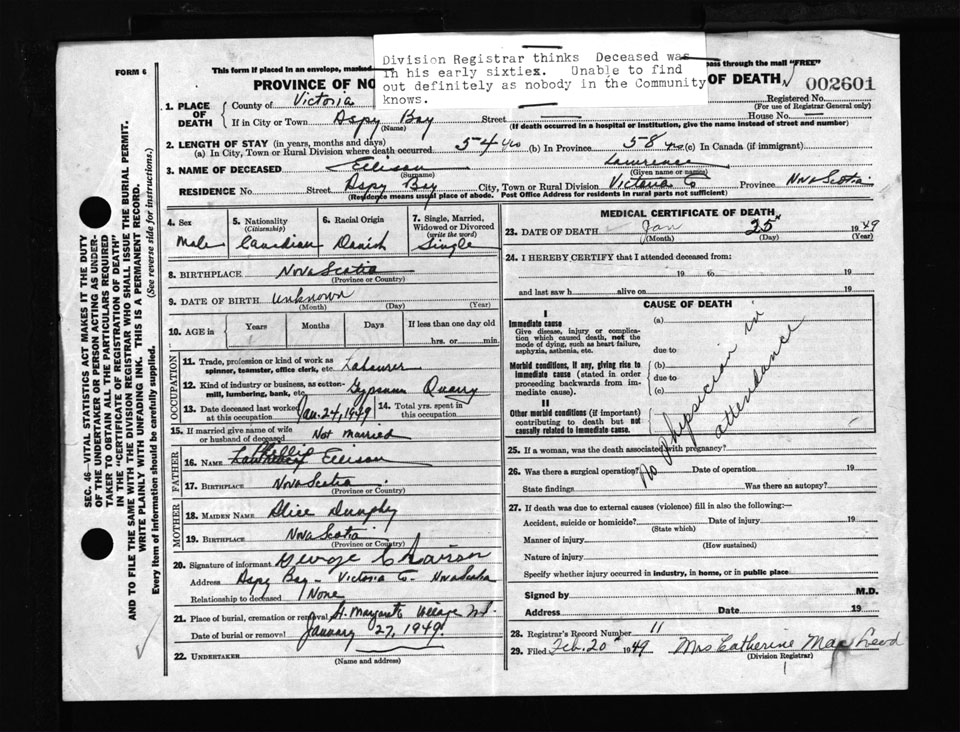 Division Registrar thinks Deceased was
in his early sixties. Unable to find
out definitely as nobody in the Community
knows.
FORM 6
This form if placed in an envelope, marked
pass through the mail "FREE"
PROVINCE OF NO
OF DEATH
002601
Registered No.
(For use of Registrar General only)
1. PLACE OF DEATH
County of Victoria
If in City or Town Aspy Bay Street House No.
(Name) (If death occurred in a hospital or institution, give the name instead of street and number)
2. LENGTH OF STAY (in years, months and days)
(a) In City, Town or Rural Division where death occurred 54 yrs (b) In Province 58 yrs (c) In Canada (if immigrant)
3. NAME OF DECEASED Ellison Lawrence
(Surname) (Given name or names)
RESIDENCE No. Street Aspy Bay City, Town or Rural Division Victoria Co Province Nova Scotia
(Residence means usual place of abode. Post Office Address for residents in rural parts not sufficient)
4. Sex
Male
5. Nationality
(Citizenship)
Canadian
6. Racial Origin
Danish
7. Single, Married,
Widowed or Divorced
(write the word)
Single
8. BIRTHPLACE Nova Scotia
(Province or Country)
9. DATE OF BIRTH Unknown
(Month) (Day) (Year)
10. AGE in
Years Months Days If less than one day old
hrs. or min.
OCCUPATION
11. Trade, profession or kind of work as
spinner, teamster, office clerk, etc. Labourer
12. Kind of industry or business, as cotton-
mill, lumbering, bank, etc. Gypsum Quarry
13. Date deceased last worked
at this occupation Jan. 24, 1949
14. Total yrs. spent in
this occupation
15. If married give name of wife
or husband of deceased Not Married
FATHER
16. NAME Phillip Ellison
17. BIRTHPLACE Nova Scotia
(Province or Country)
MOTHER
18. MAIDEN NAME Alice Dunphy
19. BIRTHPLACE Nova Scotia
(Province or Country)
20. Signature of informant George
Address Aspy Bay - Victoria Co - Nova Scotia
Relationship to deceased None
21. Place of burial, cremation or removal St. Margarets Village N.S.
Date of burial or removal January 27, 1949.
22. UNDERTAKER
(Name and address)
MEDICAL CERTIFICATE OF DEATH
23. DATE OF DEATH Jan 25" 1949
(Month) (Day) (Year)
24. I HEREBY CERTIFY that I attended deceased from:
19 to 19
and last saw h alive on 19
CAUSE OF DEATH
I
Immediate cause
Give disease, injury or complica-
tion which caused death, not the
mode of dying, such as heart failure,
asphyxia, asthenia, etc.
(a)
due to
Morbid conditions, if any, giving rise to
immediate cause (stated in order
proceeding backwards from im-
mediate cause).
(b)
due to
(c)
II
Other morbid conditions (if important)
contributing to death but not
causally related to immediate cause.
No physician in
attendance
25. If a woman, was the death associated with pregnancy?
26. Was there a surgical operation? Date of operation 19
State findings Was there an autopsy?
27. If death was due to external causes (violence) fill in also the following:
Accident, suicide or homicide? Date of injury 19
(State which)
Manner of injury
(How sustained)
Nature of injury
Specify whether injury occurred in industry, in home, or in public place
Signed by M.D.
Address Date 19
28. Registrar's Record Number 11
29. Filed Feb. 20" 1949 Mrs Catherine MacLeod
(Division Registrar)
SEC. 46—VITAL STATISTICS ACT MAKES IT THE DUTY
OF THE UNDERTAKER OR PERSON ACTING AS UNDER-
TAKER TO OBTAIN ALL THE PARTICULARS REQUIRED
IN THE "CERTIFICATE OF REGISTRATION OF DEATH"
AND TO FILE THE SAME WITH THE DIVISION REGISTRAR WHO SHALL ISSUE THE BURIAL PERMIT.
WRITE PLAINLY WITH UNFADING INK. THIS IS A PERMANENT RECORD.
Every item of information should be carefully supplied. (See reverse side for instructions.)